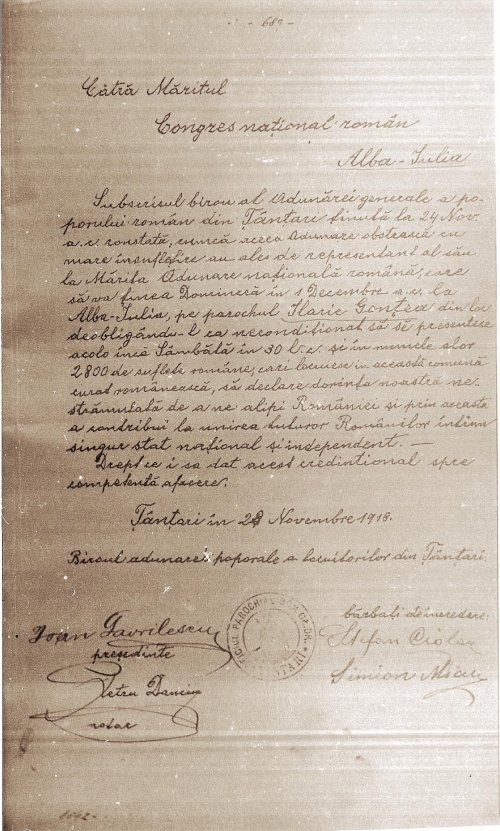 - 689 -
Cătră Măritul
Congres național român
Alba-Iulia
Subscrisul birou al Adunărei generale a po-
porului român din Țânțari ținută la 24 Nov
a.c. constată, cumcă aceea Adunare obștească cu
mare însuflețire au ales de representant al său
la Mărita Adunare națională română, care
să va ținea Dominecă în 1 Decembre a.c. la
Alba-Iulia, pe parochul Ilarie Gonțea din loc
deobligându-l ca necondiționat să se presenteze
acolo încă Sâmbătă în 30 l.c. și în numele alor
2800 de suflete române, cari locuesc in această comună
curat românească, să declare dorința noastră ne-
strămutată de a ne alipi României și prin aceasta
a contribui la unirea tuturor Românilor într'un
singur stat național și independent. —
Dreptce i sa dat acest credintional spre
competentă afacere.
Țânțari în 28 Novembre 1918.
Biroul adunarei poporale a locuitorilor din Țânțari.
Ioan Gavrilescu
presedinte
Petru Danciu
notar
bărbați deincredere:
Ștefan Ciolan
Simion Micu